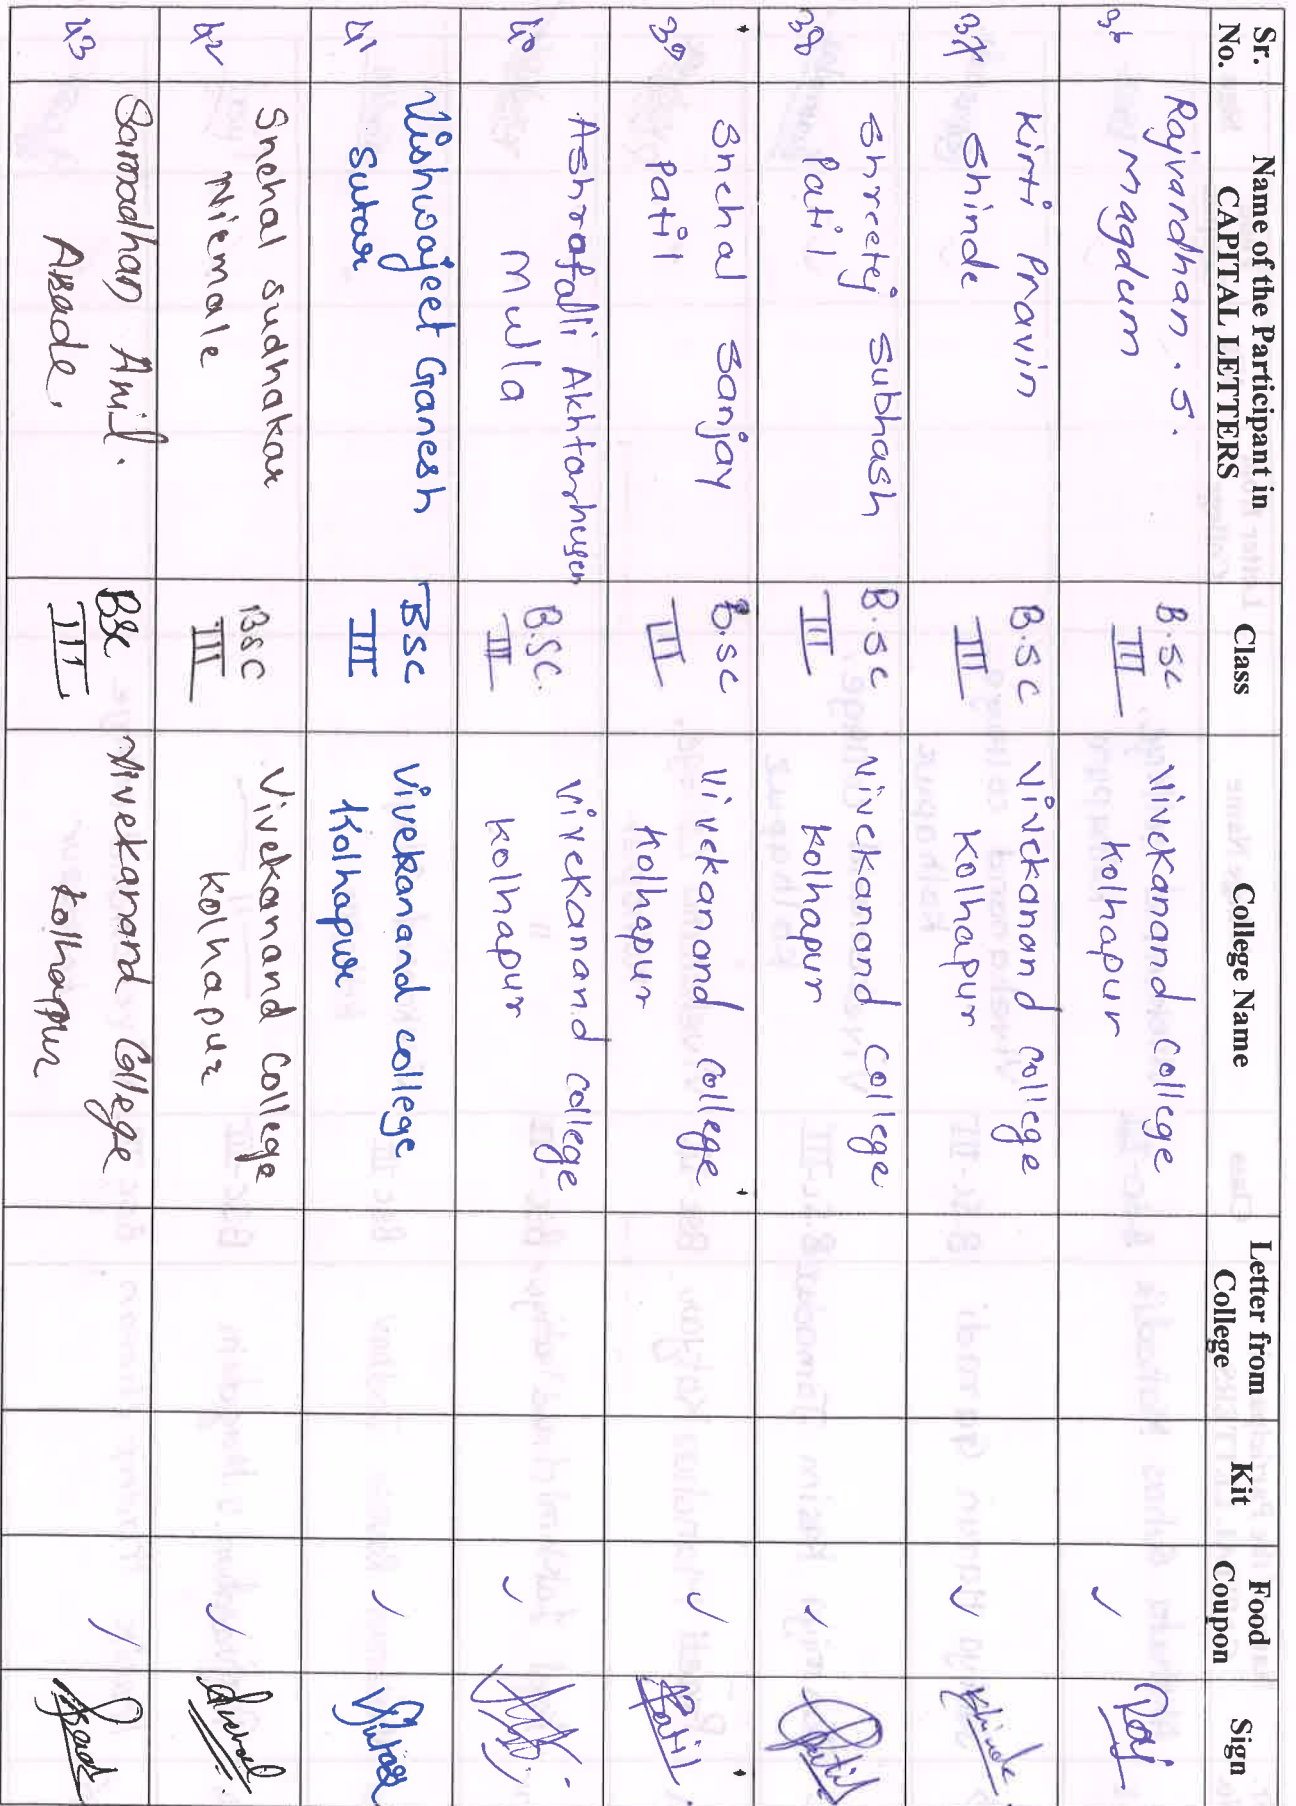 Sr. No. Name of the Participant in CAPITAL LETTERS Class College Name Letter from College Kit Food Coupon Sign
36 Rajvardhan . S. Magdum B.sc III Vivekanand College Kolhapur ✓ Raj
37 Kirti Pravin Shinde B.SC III Vivekanand College Kolhapur ✓ Shinde
38 Shreetej Subhash Patil B.SC III Vivekanand College Kolhapur ✓ Patil
39 Snehal Sanjay Patil B.SC III Vivekanand College Kolhapur ✓ Patil
40 Ashrafalli Akhtarhusen Mulla B.SC. III Vivekanand College Kolhapur ✓
41 Vishwajeet Ganesh Sutar BSC III Vivekanand college Kolhapur ✓ Sutar
42 Snehal Sudhakar Nirmale BSC III Vivekanand College Kolhapur ✓ Snehal
43 Samadhan Anil. Asade. BSC III Vivekanand College Kolhapur ✓ Asade